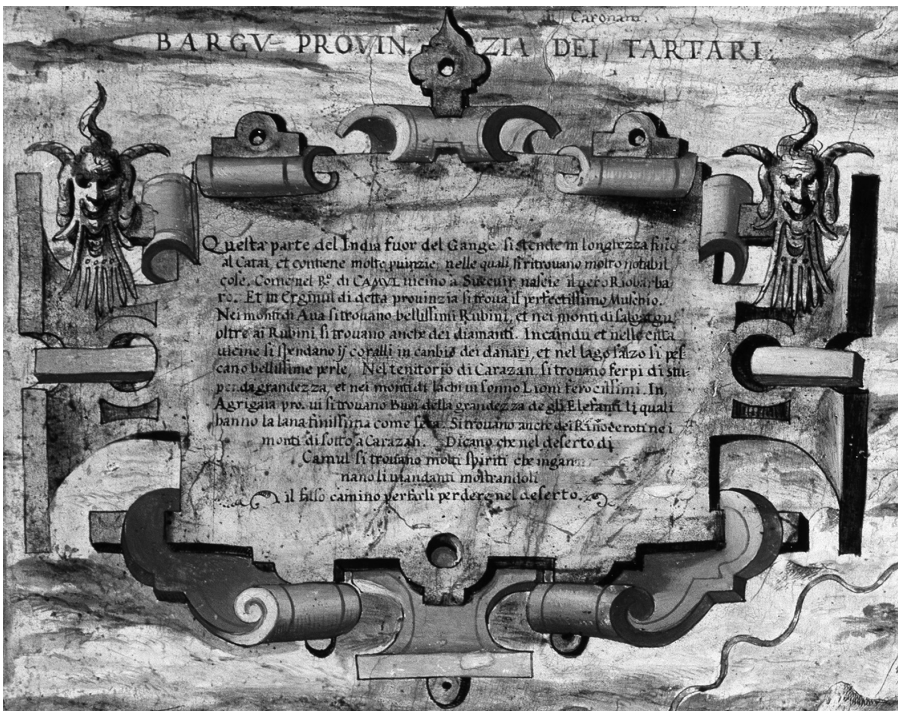 Caronam.
BARGV PROVIN. ZIA DEI TARTARI.
Questa parte del India fuor del Gange si stende in longhezza fino
al Catai, et contiene molte puinzie, nelle quali si ritrouano molto notabil
cose. Come nel R.º di CAMVL uicino a Succuir nascie il uero Riobarba
ro. Et in Erginul di detta prouinzia si troua il perfectissimo Muschio.
Nei monti di Aua si trouano bellissimi Rubini, et nei monti di
oltre ai Rubini si trouano anche dei diamanti. In caindu et nelle citta
uicine si spendano ij coralli in canbio dei danari, et nel lago salzo si pes
cano bellissime perle. Nel teritorio di Carazan si trouano serpi di stu
penda grandezza, et nei monti di Iachi in sonno Lioni ferocissimi. In
Agrigaia pro. ui si trouano Buoi della grandezza de gli Elefanti li quali
hanno la lana finissima come seta. Si trouano anche dei Rinoceroti nei
monti di sotto a Carazan. Dicano che nel deserto di
Camul si trouano molti spiriti che ingan
nano li uiandanti mostrandoli
il falso camino per farli perdere nel deserto.